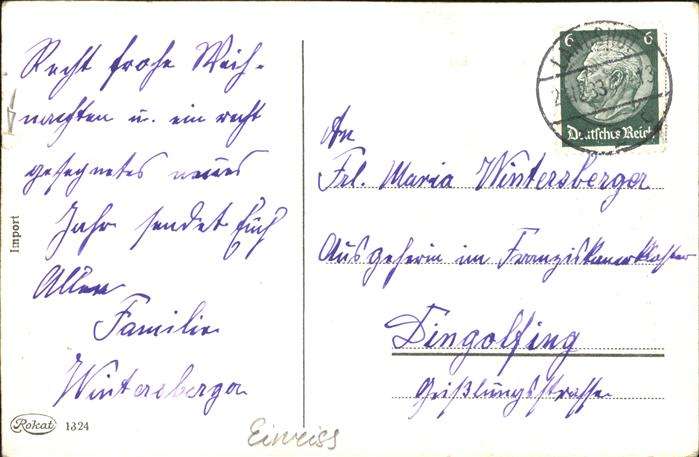 Recht frohe Weih-
nachten u. ein recht
gesegnetes neues
Jahr sendet Euch
Allen
Familie
Wintersberger
Import
Rokat 1324
Einweiss
6 6
Deutsches Reich
LANDSHUT
An
Frl. Maria Wintersberger
Ausgeherin im Franziskanerkloster
Dingolfing
Geißlungsstrasse